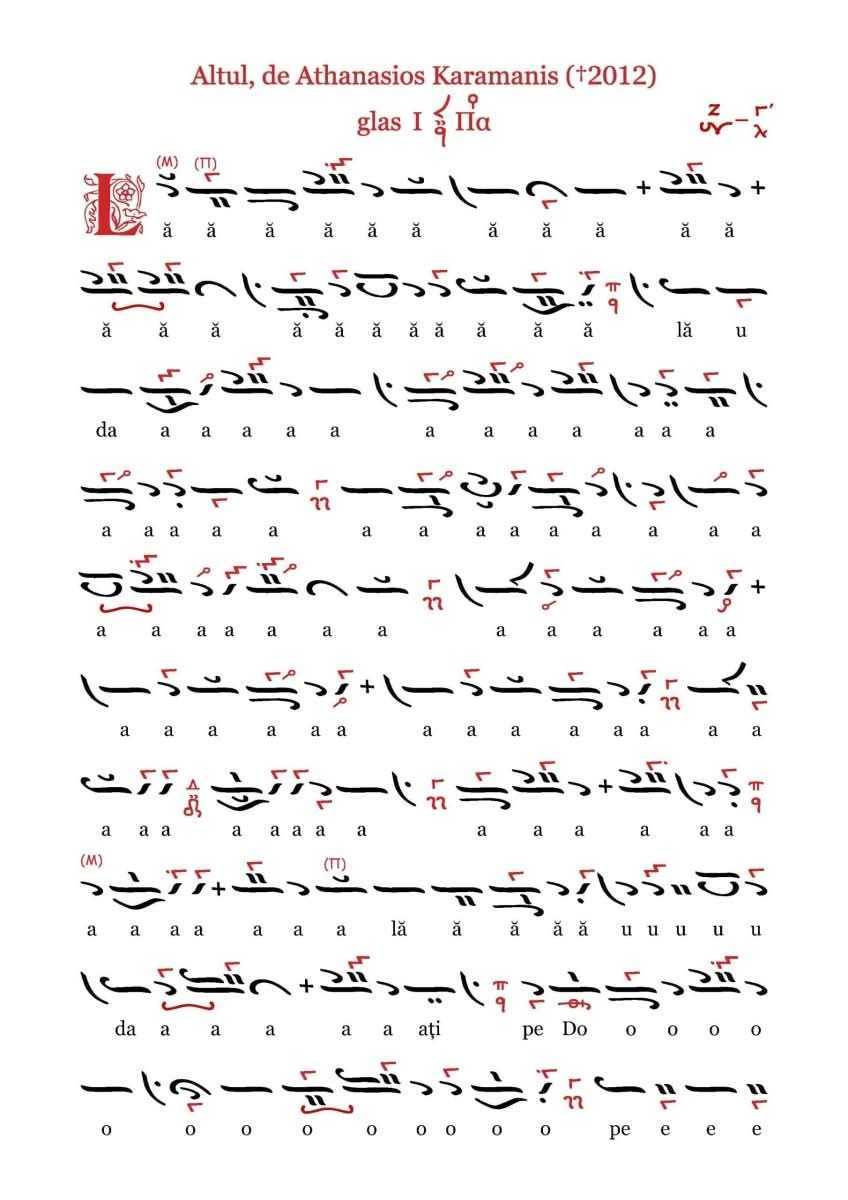 Altul, de Athanasios Karamanis (†2012)
glas I Πα
(М) (П)
L ă ă ă ă ă ă ă ă ă ă ă
ă ă ă ă ă ă ă ă ă ă ă lă u
da a a a a a a a a a a a a
a a a a a a a a a a a a a a
a a a a a a a a a a a a a
a a a a a a a a a a a a a a
a a a a a a a a a a a a a
(М) (П)
a a a a a a a lă ă ă ă ă u u u u u
da a a a a a ați pe Do o o o o
o o o o o o o o o pe e e e